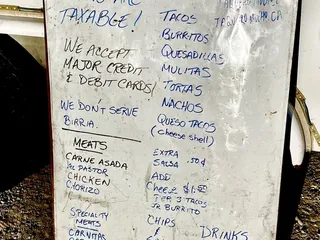 TAXABLE!
WE ACCEPT
MAJOR CREDIT
& DEBIT CARDS!
WE DON'T SERVE
BIRRIA.
MEATS
CARNE ASADA
AL PASTOR
CHICKEN
CHORIZO
SPECIALTY
MEATS
CARNITAS
TACOS
BURRITOS
QUESADILLAS
MULITAS
TORTAS
NACHOS
QUESO TACOS
(cheese shell)
EXTRA
SALSA .50¢
ADD
CHEEZ $1.00
PER 3 TACOS
OR BURRITO
CHIPS
&
DRINKS